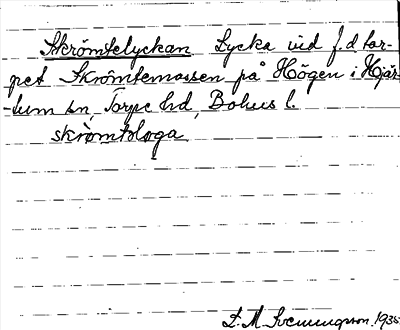 Skrömtelyckan Lycka vid f.d. tor-
pet Skrömtemossen på Högen i Hjär-
-tum sn, Torpe hd, Bohus l.
skròmtəloga
L. M. Svenungsson. 1935